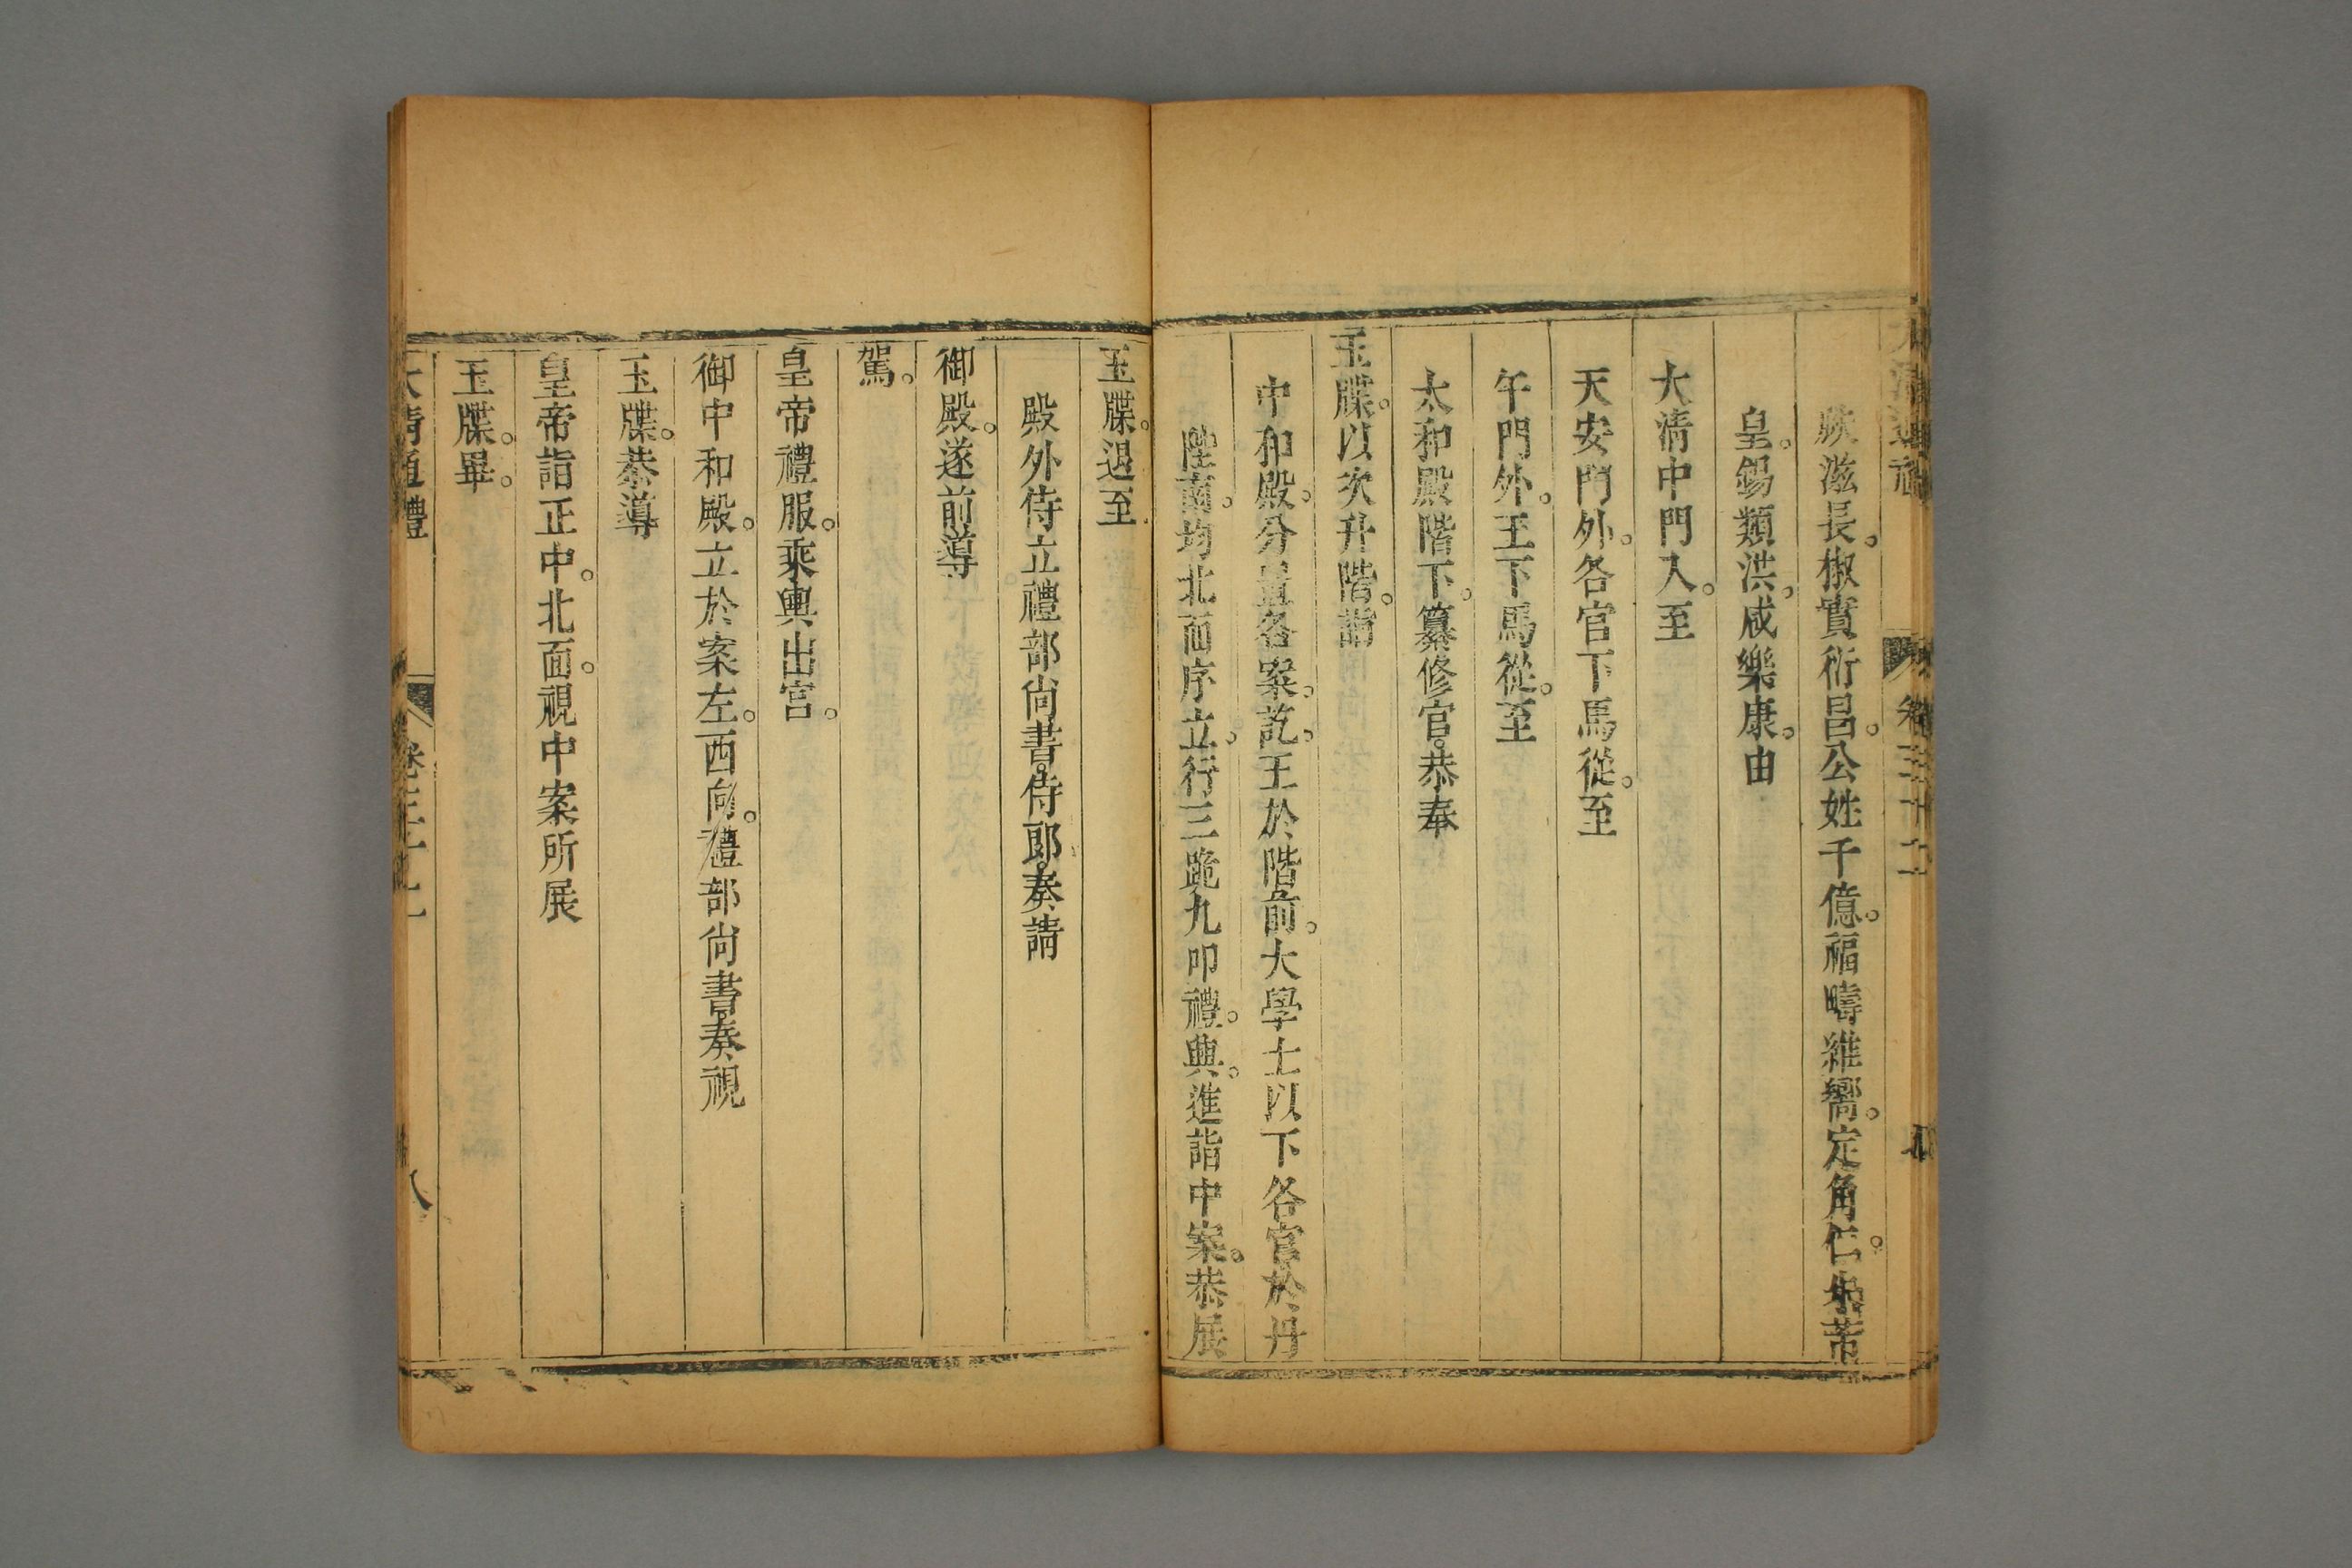 瓞滋長。椒實衍昌。公姓千億。福疇維嚮。定角仁。
皇。錫類洪。咸樂康。由
大清中門入。至
天安門外。各官下馬從。至
午門外。王下馬從。至
太和殿階下。纂修官。恭奉
玉牒。以次升階。詣
中和殿。分置各案。訖。王於階前。大學士以下各官於丹
陛南。均北面序立。行三跪九叩禮。興。進詣中案。恭展
玉牒。退至
殿外侍立禮部尚書。侍郎。奏請
御殿。遂前導
駕。
皇帝禮服。乘輿出宮。
御中和殿。立於案左。西向。禮部尚書。奏視
玉牒。恭導
皇帝詣正中。北面。視中案所展
玉牒。畢。
大清通禮 卷三十二 八